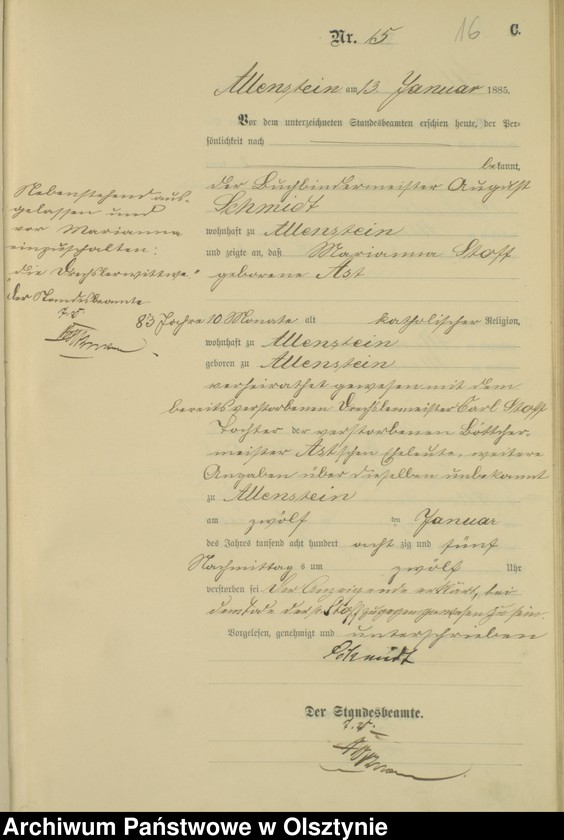 16
C.
Nr. 15
Allenstein am 13 Januar 1885.
Vor dem unterzeichneten Standesbeamten erschien heute, der Per-
sönlichkeit nach
bekannt,
der Buchbindermeister August
Schmidt
wohnhaft zu Allenstein
und zeigte an, daß Marianna Stoff
geborene Ast
83 Jahre 10 Monate alt katholischer Religion,
wohnhaft zu Allenstein
geboren zu Allenstein
verheirathet gewesen mit dem
bereits verstorbenen Drechslermeister Carl Stoff
Tochter der verstorbenen Böttcher-
meister Ast'schen Eheleute, weitere
Angaben über dieselben unbekannt
zu Allenstein
am zwölf ten Januar
des Jahres tausend acht hundert acht zig und fünf
Nachmittag s um zwölf Uhr
verstorben sei. Der Anzeigende erklärt, bei
dem Tode der Stoff zugegen gewesen zu sein.
Vorgelesen, genehmigt und unterschrieben
Schmidt
Der Standesbeamte.
I. V.
Nebenstehend aus-
gelassen und
vor Marianna
einzuschalten:
"die Drechslerwittwe."
Der Standesbeamte
I. V.
Archiwum Państwowe w Olsztynie